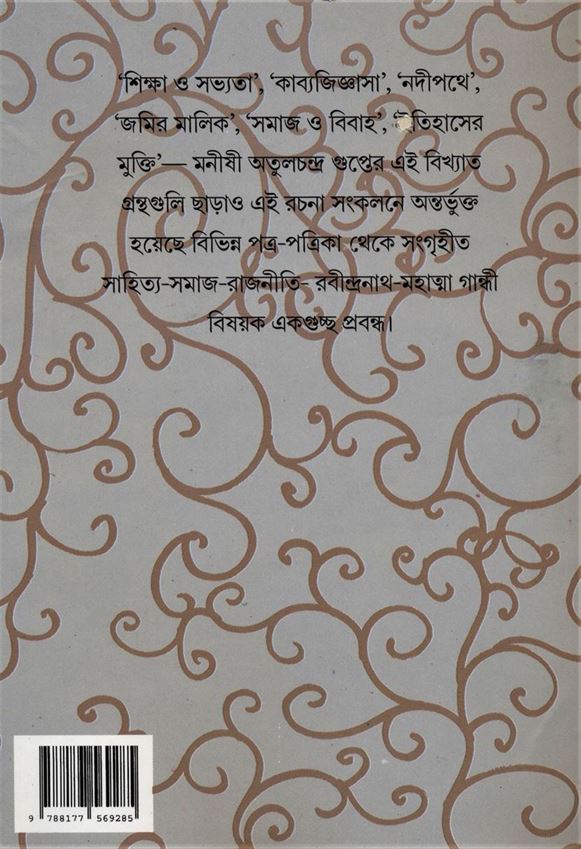 ‘শিক্ষা ও সভ্যতা’, ‘কাব্যজিজ্ঞাসা’, ‘নদীপথে’,
‘জমির মালিক’, ‘সমাজ ও বিবাহ’, ‘ইতিহাসের
মুক্তি’— মনীষী অতুলচন্দ্র গুপ্তের এই বিখ্যাত
গ্রন্থগুলি ছাড়াও এই রচনা সংকলনে অন্তর্ভুক্ত
হয়েছে বিভিন্ন পত্র-পত্রিকা থেকে সংগৃহীত
সাহিত্য-সমাজ-রাজনীতি- রবীন্দ্রনাথ-মহাত্মা গান্ধী
বিষয়ক একগুচ্ছ প্রবন্ধ।
9 788177 569285